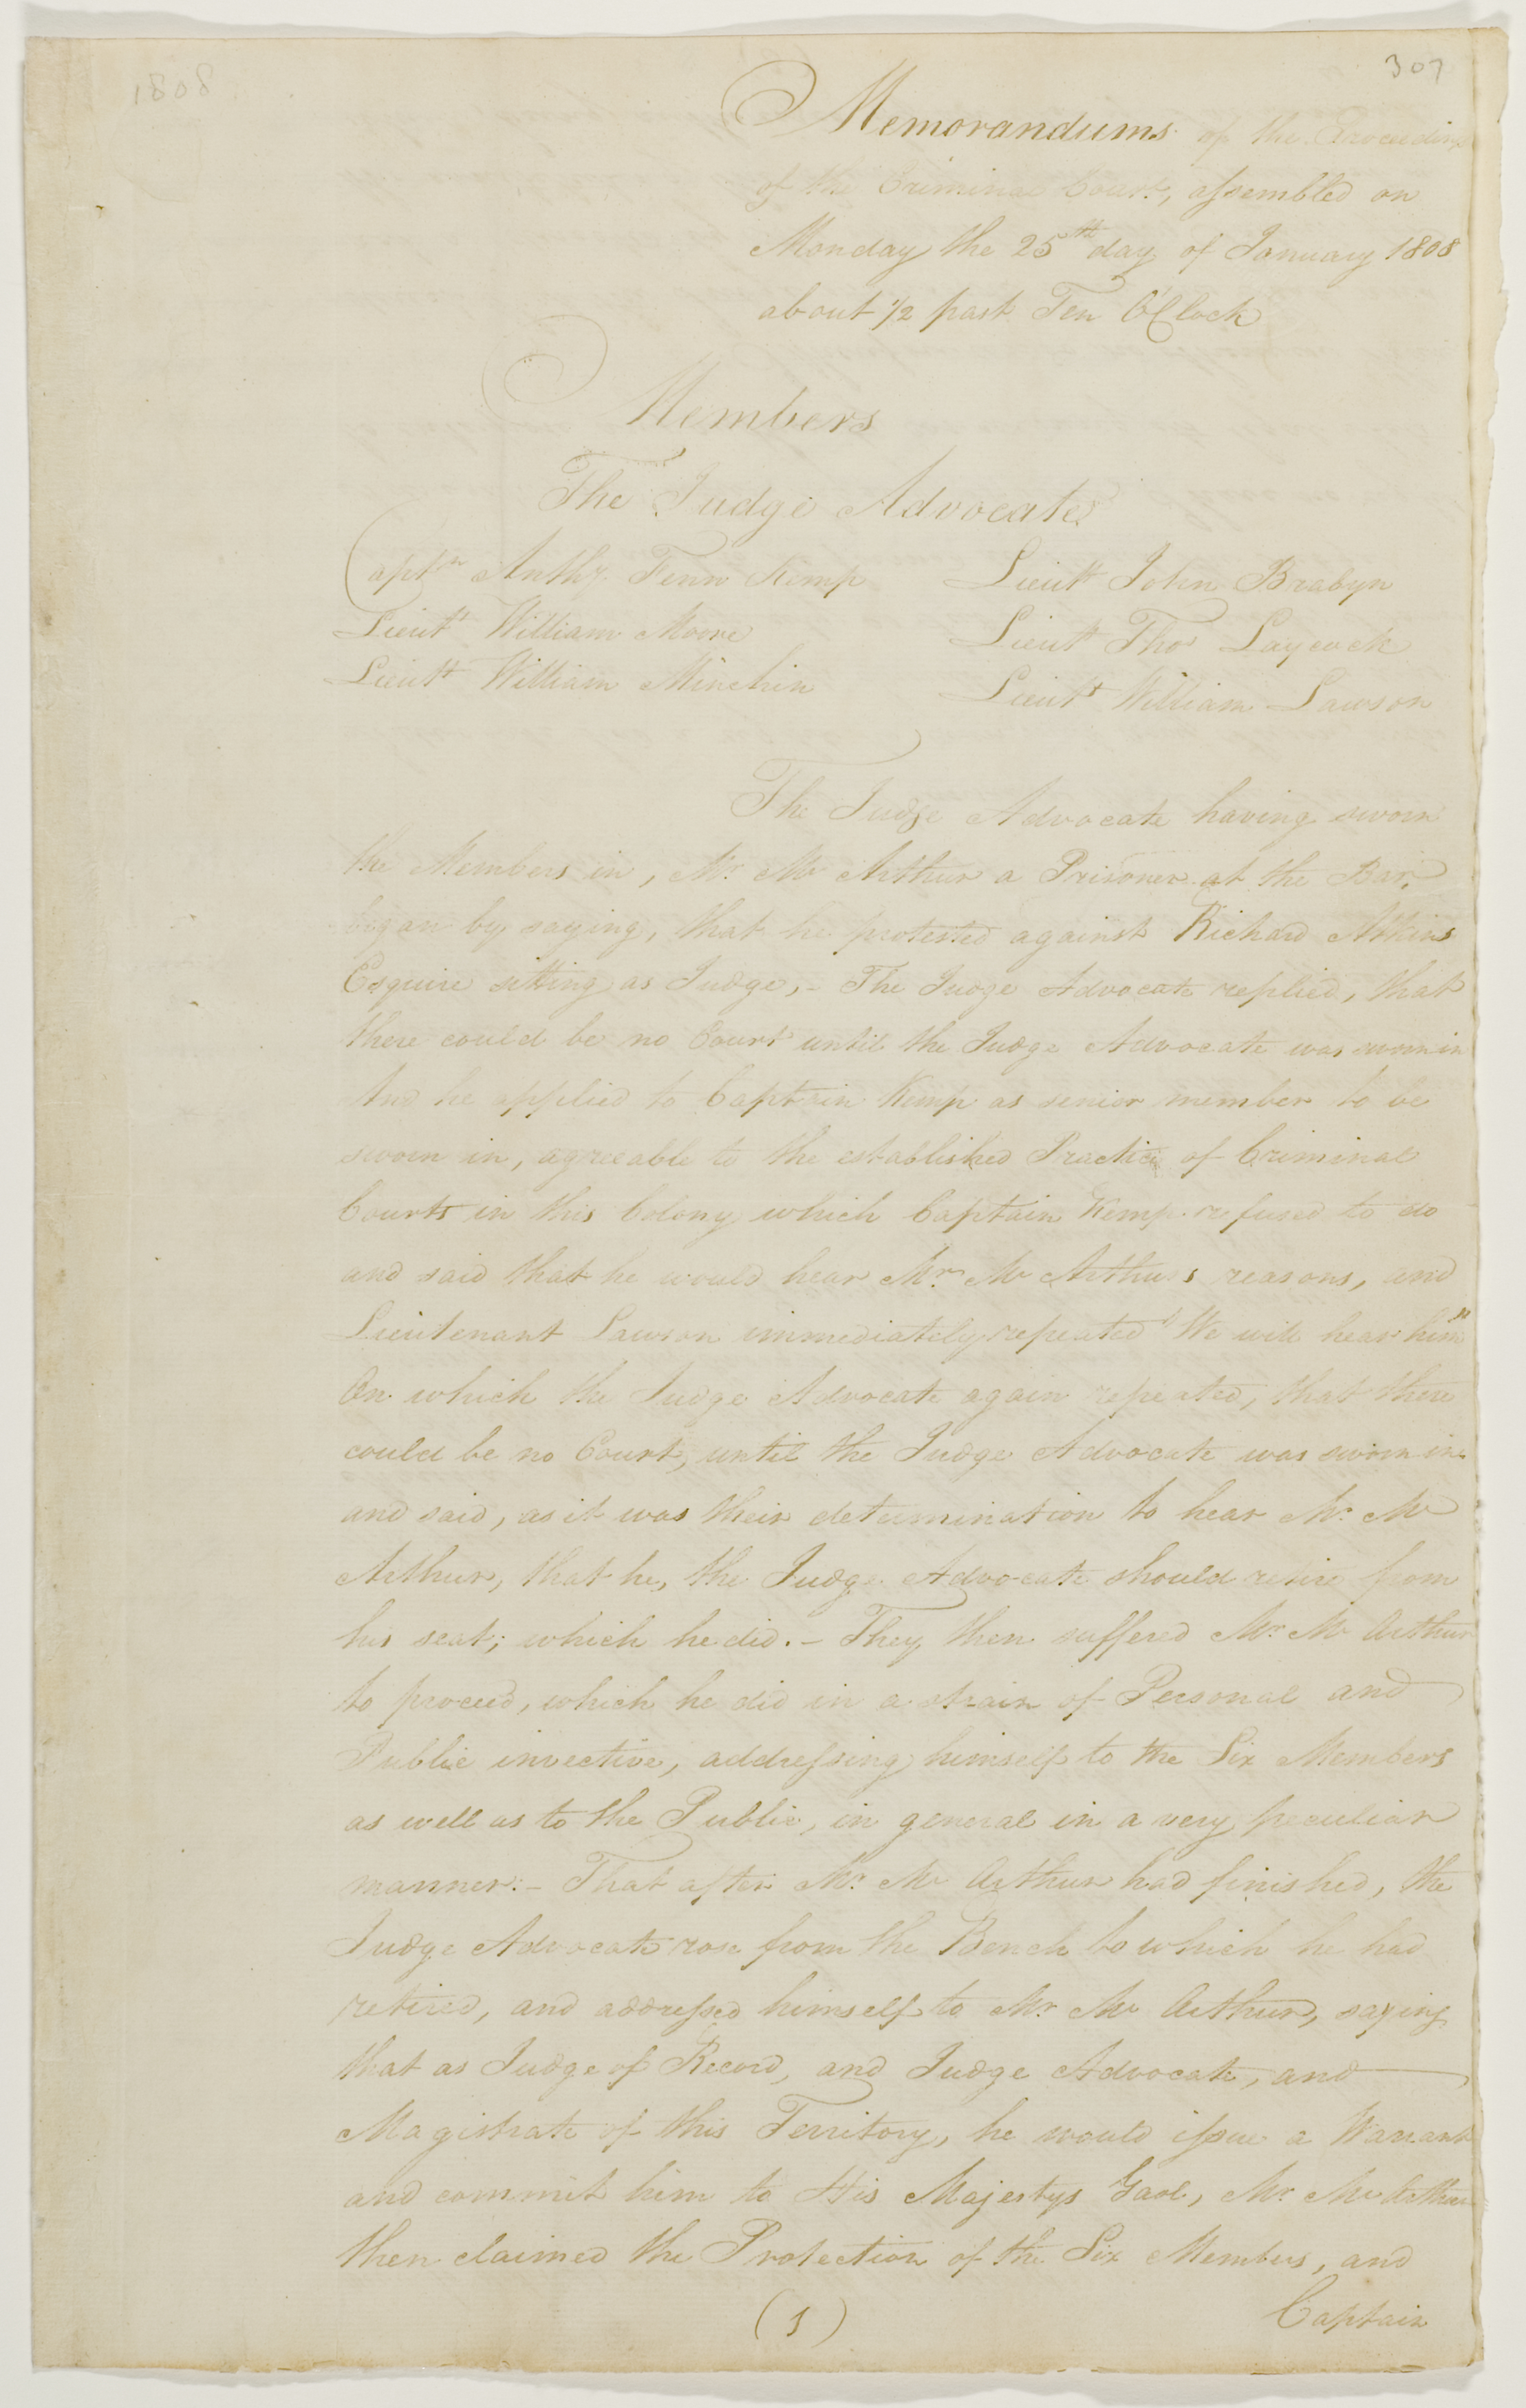 1808
307
Memorandums of the Proceedings
of the Criminal Court, assembled on
Monday the 25th day of January 1808
about 1/2 past Ten O'Clock
Members
The Judge Advocate
Captn Anthy. Fenn Kemp
Lieutt John Brabyn
Lieutt William Moore
Lieutt Thos Laycock
Lieutt William Minchin
Lieutt William Lawson
The Judge Advocate having sworn
the Members in, Mr. Mc Arthur a Prisoner at the Bar,
began by saying, that he protested against Richard Atkins
Esquire sitting as Judge, - The Judge Advocate replied, that
there could be no Court until the Judge Advocate was sworn in
And he applied to Captain Kemp as senior member to be
sworn in, agreeable to the established Practice of Criminal
Courts in this Colony which Captain Kemp refused to do
and said that he would hear Mr. Mc Arthurs reasons, and
Lieutenant Lawson immediately repeated "We will hear him"
On which the Judge Advocate again repeated, that there
could be no Court, until the Judge Advocate was sworn in
and said, as it was their determination to hear Mr. Mc
Arthur, that he, the Judge Advocate should retire from
his seat; which he did. - They then suffered Mr. Mc Arthur
to proceed, which he did in a strain of Personal and
Public invective, addressing himself to the Six Members
as well as to the Public, in general in a very peculiar
manner: - That after Mr. Mc Arthur had finished, the
Judge Advocate rose from the Bench to which he had
retired, and addressed himself to Mr. Mc Arthur, saying
that as Judge of Record, and Judge Advocate, and
Magistrate of this Territory, he would issue a Warrant
and commit him to His Majestys Gaol, Mr. Mc Arthur
then claimed the Protection of the Six Members, and
(1)
Captain